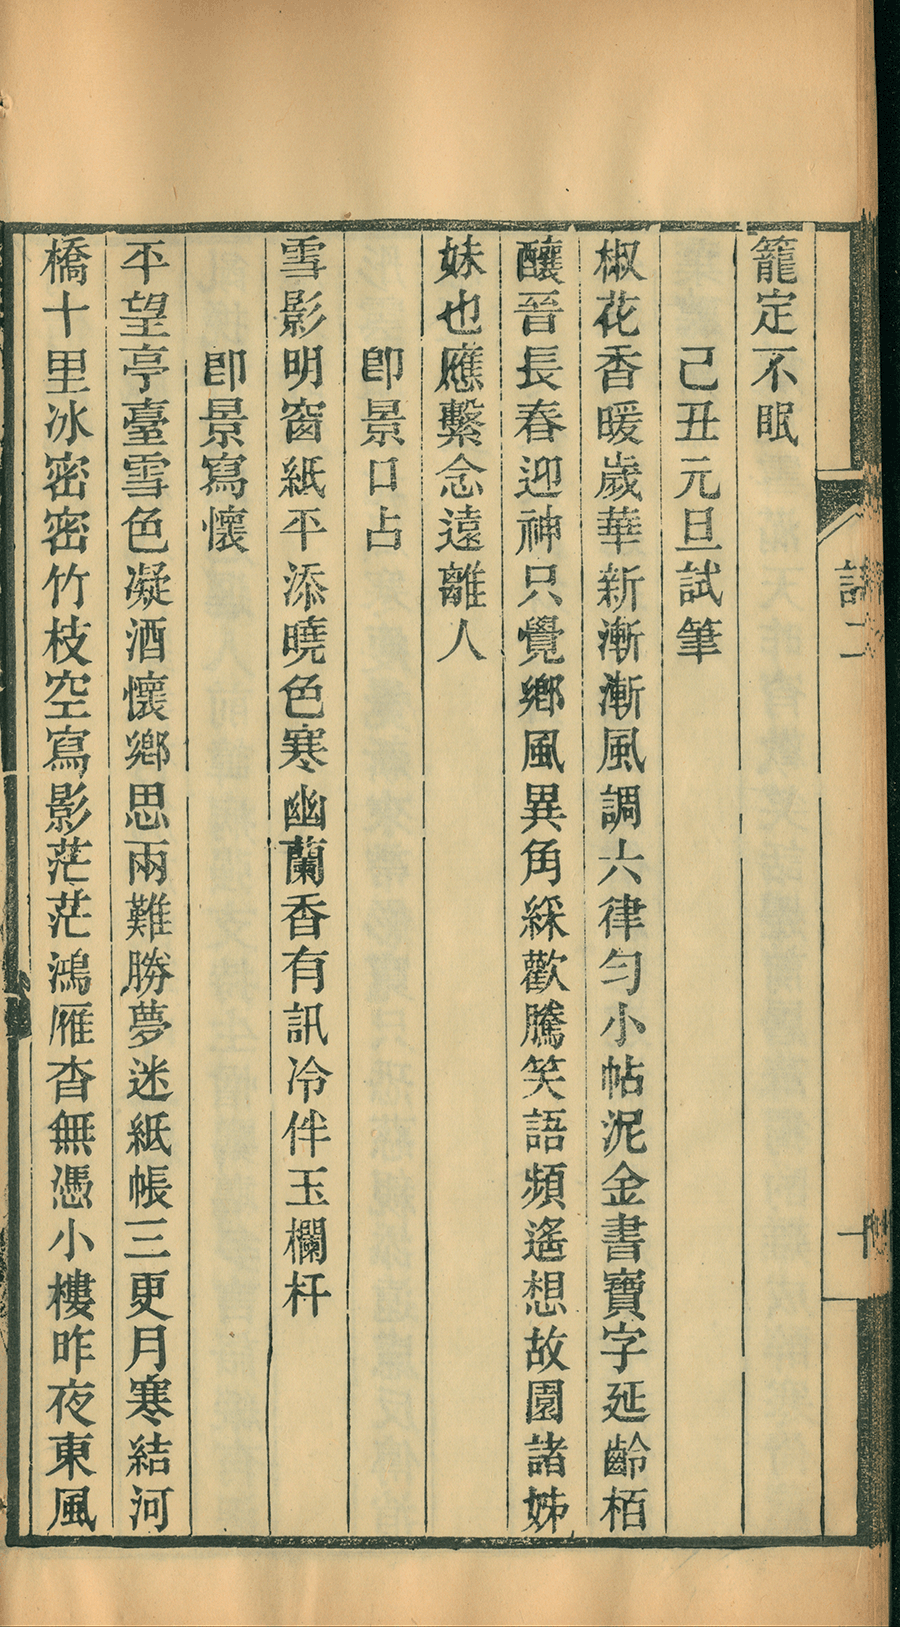 籠定不眠
己丑元旦試筆
椒花香暖歲華新漸漸風調六律勻小帖泥金書寶字延齡栢
釀晉長春迎神只覺鄉風異角綵歡騰笑語頻遙想故園諸姊
妹也應繫念遠離人
卽景口占
雪影明窗紙平添曉色寒幽蘭香有訊冷伴玉欄杆
卽景寫懷
平望亭臺雪色凝酒懷鄉思兩難勝夢迷紙帳三更月寒結河
橋十里冰密密竹枝空寫影茫茫鴻雁杳無憑小樓昨夜東風